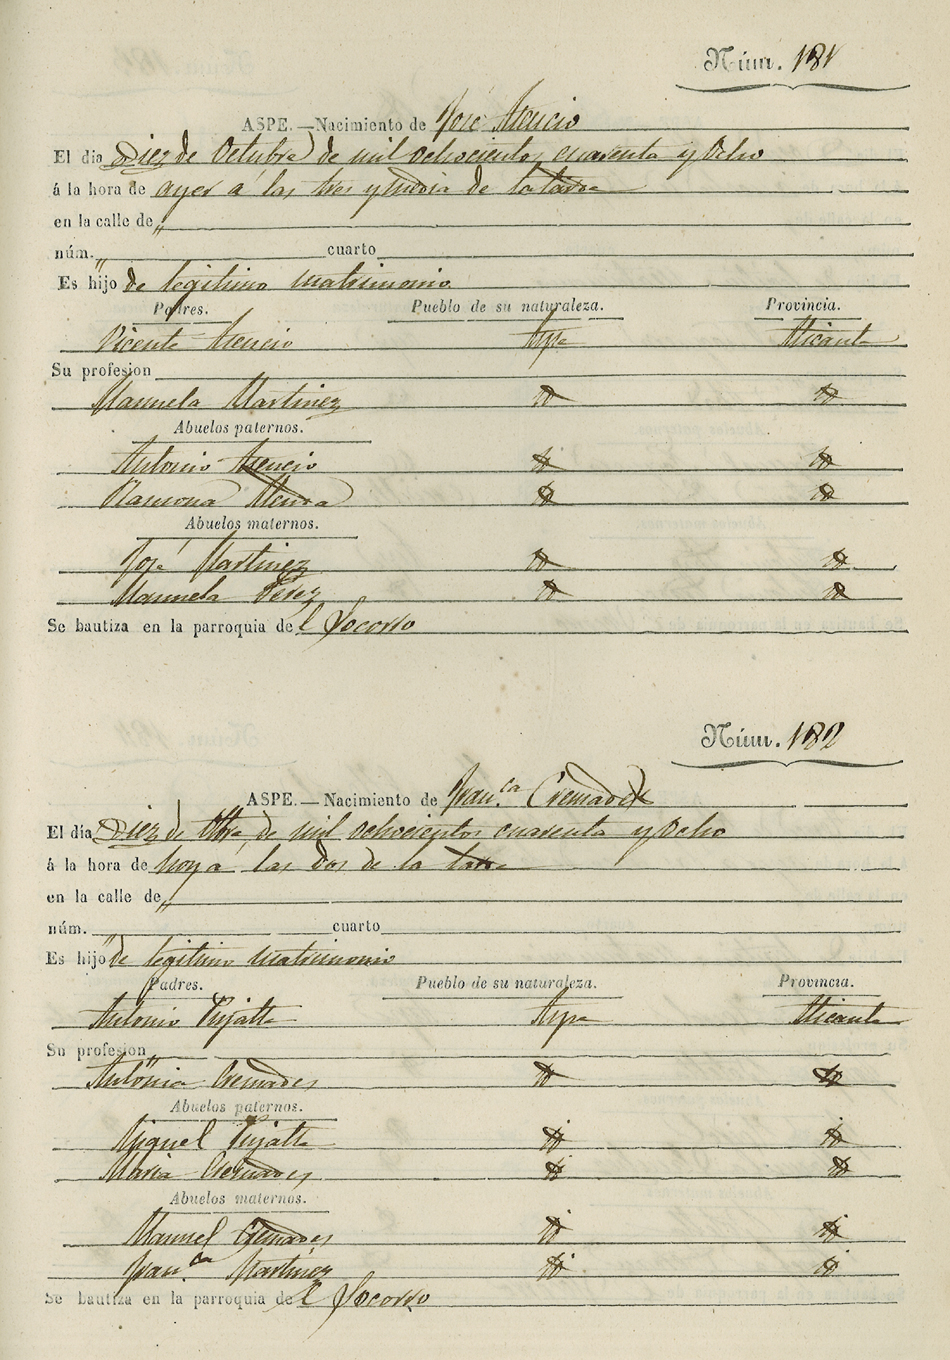 Núm. 181
ASPE.—Nacimiento de José Asencio
El dia Diez de Octubre de mil ochocientos cuarenta y Ocho
á la hora de ayer á las tres y media de la tarde
en la calle de "
núm. " cuarto
Es hijo de legitimo matrimonio
Padres. Pueblo de su naturaleza. Provincia.
Vicente Asencio Aspe Alicante
Su profesion
Manuela Martinez
Abuelos paternos.
Antonio Asencio
Ramona
Abuelos maternos.
José Martinez
Manuela Perez
Se bautiza en la parroquia del Socorro
Núm. 182
ASPE.—Nacimiento de Fran.ca Cremades
El día Diez de Otbre de mil ochocientos cuarenta y Ocho
á la hora de hoy a las dos de la tarde
en la calle de "
núm. " cuarto
Es hijo de legitimo matrimonio
Padres. Pueblo de su naturaleza. Provincia.
Antonio Pujalte Aspe Alicante
Su profesion "
Antonia Cremades
Abuelos paternos.
Miguel Pujalte
Maria Cremades
Abuelos maternos.
Manuel Cremades
Fran.ca Martinez
Se bautiza en la parroquia del Socorro